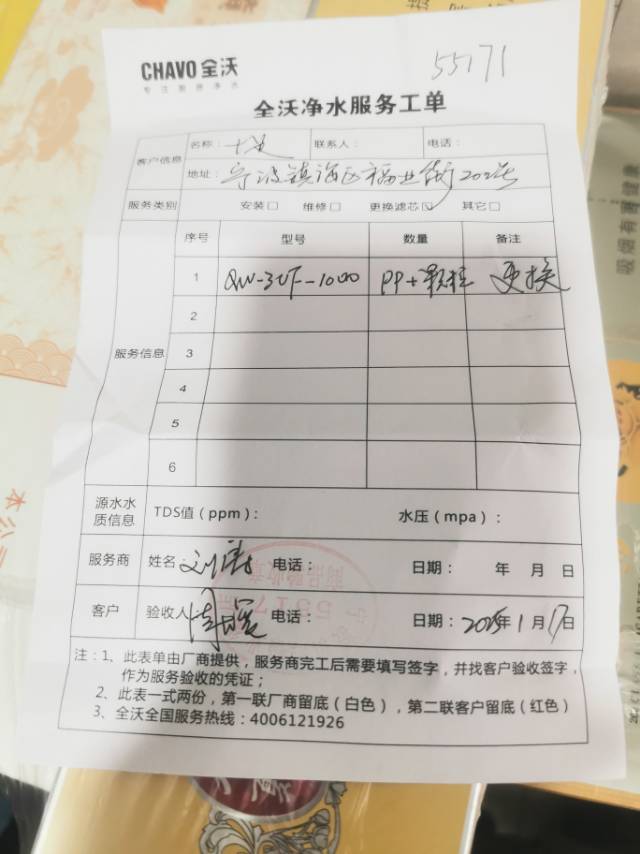 CHAVO全沃
专注智能净水
55171
全沃净水服务工单
客户信息
名称：
联系人：
电话：
地址：宁波镇海区福业街202号
服务类别
安装□ 维修□ 更换滤芯☑ 其它□
服务信息
序号 型号 数量 备注
1 QW-3UF-1000 PP+颗粒 更换
2
3
4
5
6
源水水质信息
TDS值（ppm）：
水压（mpa）：
服务商 姓名： 电话： 日期： 年 月 日
客户 验收人 电话： 日期：2025年1月17日
注：1、此表单由厂商提供，服务商完工后需要填写签字，并找客户验收签字，
作为服务验收的凭证；
2、此表一式两份，第一联厂商留底（白色），第二联客户留底（红色）
3、全沃全国服务热线：4006121926
吸烟有害健康